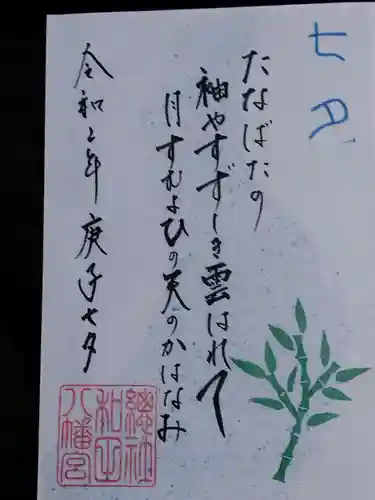 七月
たなばたの
袖やすずしき雲はれて
月すむよひの天のかはなみ
令和2年 庚子七夕
總社
和田
八幡宮